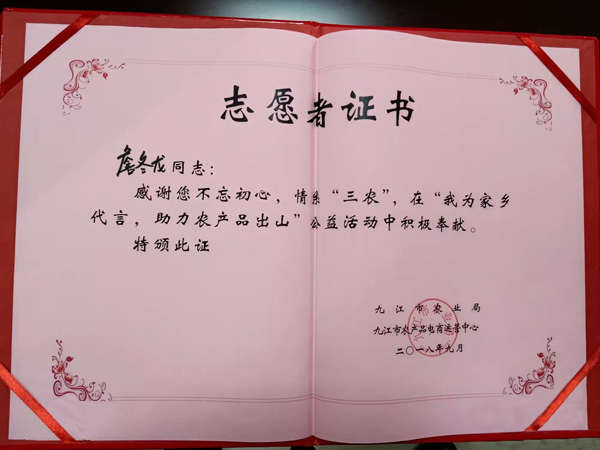 志愿者证书
詹冬龙同志：
感谢您不忘初心，情系“三农”，在“我为家乡
代言，助力农产品出山”公益活动中积极奉献。
特颁此证
九江市农业局
九江市农产品电商运营中心
二〇一八年九月